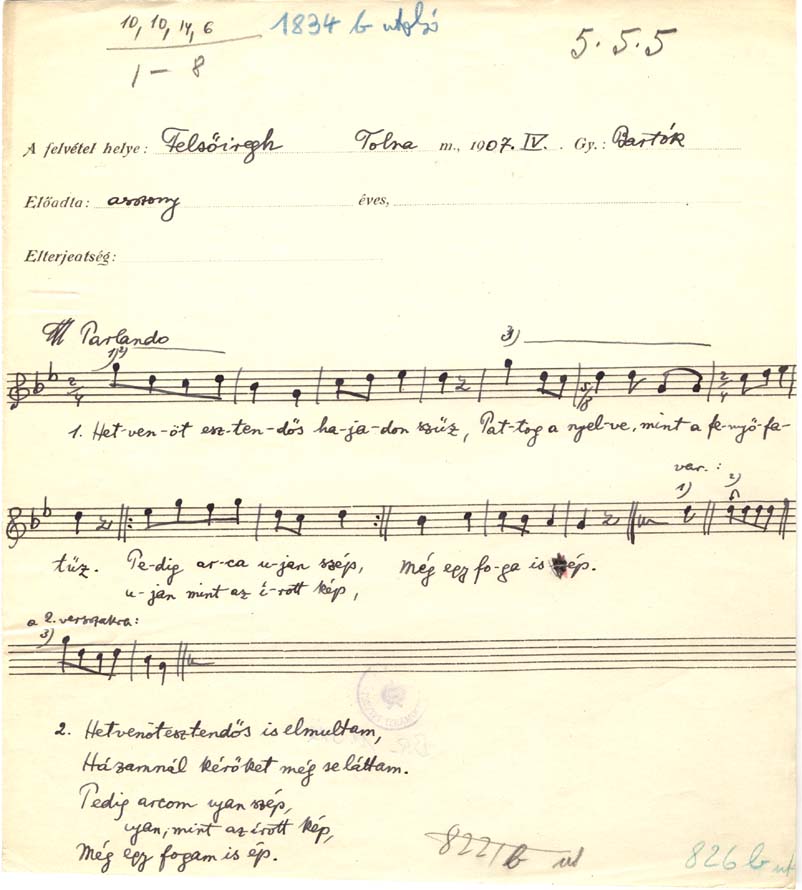 10, 10, 14, 6
1834 b utolsó
5. 5. 5
1 – 8
A felvétel helye: Felsőiregh Tolna m., 1907. IV. Gy.: Bartók
Előadta: asszony éves,
Elterjeatség:
Parlando
1) 2) 3)
1. Het-ven-öt esz-ten-dős ha-ja-don szűz, Pat-tog a nyel-ve, mint a fe-nyő-fa-
var.:
1) 2)
tűz. Pe-dig ar-ca u-jan szép, Még egy fo-ga is ép.
u-jan mint az í-rott kép,
a 2. verszakra:
3)
2. Hetvenötesztendős is elmultam,
Házamnál kérőket még se láttam.
Pedig arcom ujan szép,
ujan, mint az írott kép,
Még egy fogam is ép.
822/b ut
826 b ut